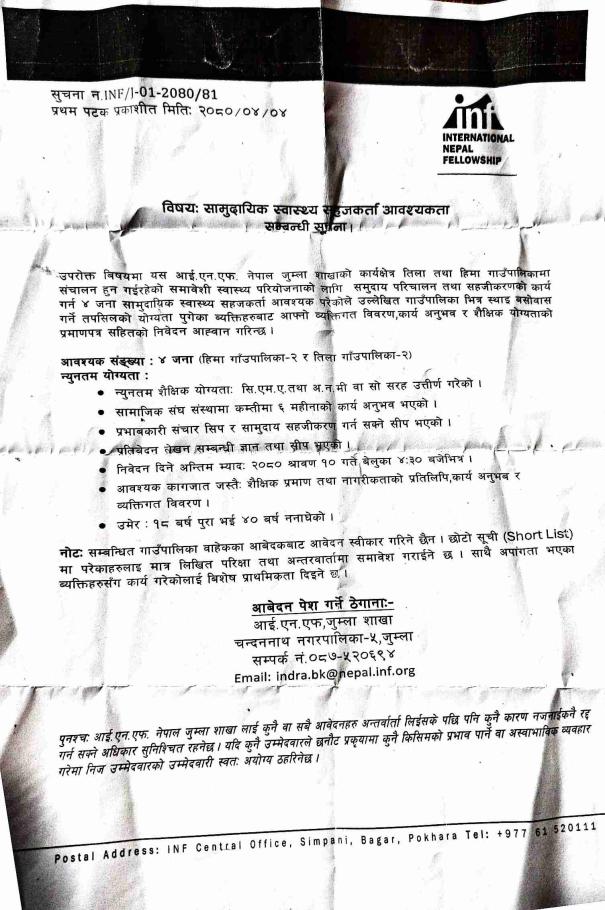 सुचना न.INF/J-01-2080/81
प्रथम पटक प्रकाशीत मितिः २०८०/०४/०४
inf
INTERNATIONAL
NEPAL
FELLOWSHIP
विषयः सामुदायिक स्वास्थ्य सहजकर्ता आवश्यकता
सम्बन्धी सुचना।
उपरोक्त बिषयमा यस आई.एन.एफ. नेपाल जुम्ला शाखाको कार्यक्षेत्र तिला तथा हिमा गाउँपालिकामा
संचालन हुन गईरहेको समावेशी स्वास्थ्य परियोजनाको लागि समुदाय परिचालन तथा सहजीकरणको कार्य
गर्न ४ जना सामुदायिक स्वास्थ्य सहजकर्ता आवश्यक परेकोले उल्लेखित गाउँपालिका भित्र स्थाइ बसोवास
गर्ने तपसिलको योग्यता पुगेका ब्यक्तिहरुबाट आफ्नो ब्यक्तिगत विवरण,कार्य अनुभव र शैक्षिक योग्यताको
प्रमाणपत्र सहितको निवेदन आह्वान गरिन्छ।
आवश्यक संङ्ख्या : ४ जना (हिमा गाँउपालिका-२ र तिला गाँउपालिका-२)
न्युनतम योग्यता :
• न्युनतम शैक्षिक योग्यताः सि.एम.ए.तथा अ.न.मी वा सो सरह उत्तीर्ण गरेको।
• सामाजिक संघ संस्थामा कम्तीमा ६ महीनाको कार्य अनुभव भएको।
• प्रभाबकारी संचार सिप र सामुदाय सहजीकरण गर्न सक्ने सीप भएको।
• प्रतिवेदन लेखन सम्बन्धी ज्ञान तथा सीप भएको।
• निवेदन दिने अन्तिम म्यादः २०८० श्रावण १० गते बेलुका ४:३० बजेभित्र।
• आवश्यक कागजात जस्तैः शैक्षिक प्रमाण तथा नागरीकताको प्रतिलिपि,कार्य अनुभब र
व्यक्तिगत विवरण।
• उमेर : १८ बर्ष पुरा भई ४० बर्ष ननाघेको।
नोटः सम्बन्धित गाउँपालिका वाहेकका आबेदकबाट आवेदन स्वीकार गरिने छैन। छोटो सूची (Short List)
मा परेकाहरुलाइ मात्र लिखित परिक्षा तथा अन्तरवार्तामा समावेश गराईने छ। साथै अपांगता भएका
ब्यक्तिहरुसंग कार्य गरेकोलाई बिशेष प्राथमिकता दिइने छ।
आबेदन पेश गर्ने ठेगानाः-
आई.एन.एफ,जुम्ला शाखा
चन्दननाथ नगरपालिका-५,जुम्ला
सम्पर्क नं.०८७-५२०६९४
Email: indra.bk@nepal.inf.org
पुनश्चः आई.एन.एफ. नेपाल जुम्ला शाखा लाई कुनै वा सबै आवेदनहरु अन्तर्वार्ता लिईसके पछि पनि कुनै कारण नजनाईकनै रद्द
गर्न सक्ने अधिकार सुनिश्चित रहनेछ। यदि कुनै उम्मेदवारले छनौट प्रकृयामा कुनै किसिमको प्रभाव पार्ने वा अस्वाभाबिक व्यवहार
गरेमा निज उम्मेदवारको उम्मेदवारी स्वतः अयोग्य ठहरिनेछ।
Postal Address: INF Central Office, Simpani, Bagar, Pokhara Tel: +977 61 520111